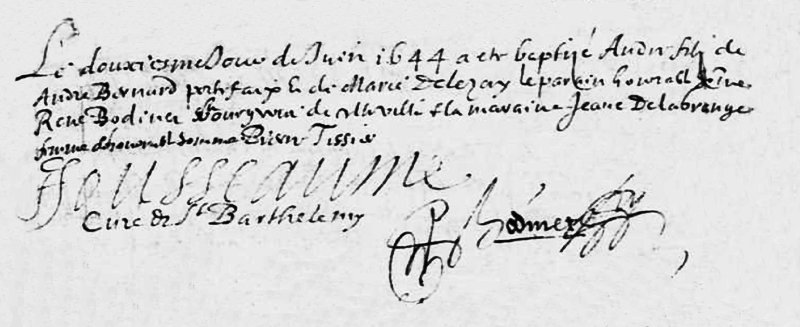 Le douxiesme Jour de Juin 1644 a ete baptisé Andre fils de
André Bernard portefaix & de Marie Delezay le parain honorable homme
René Bodiner bourgeois de cette ville & la maraine Jeane Delabrange
femme d'honorable homme Pierre Tissier
Jousseaume
Curé de St Barthelemy
R Bodiner